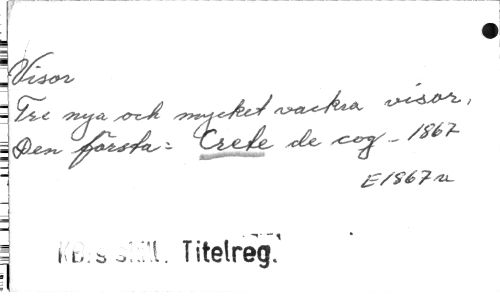 Visor
Tre nya och mycket vackra visor,
Den första: Crete de cog - 1867
E1867u
KB:s skill. Titelreg.